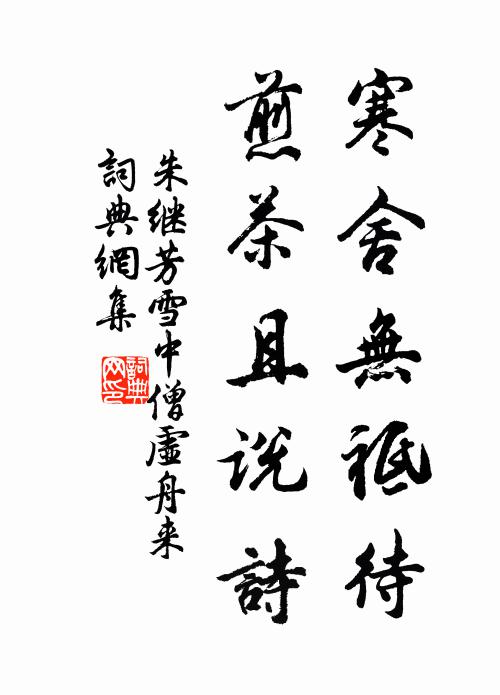 寒舍無祗待
煎茶且説詩
朱继芳雪中僧虛舟来
詞典網集
詞典网印